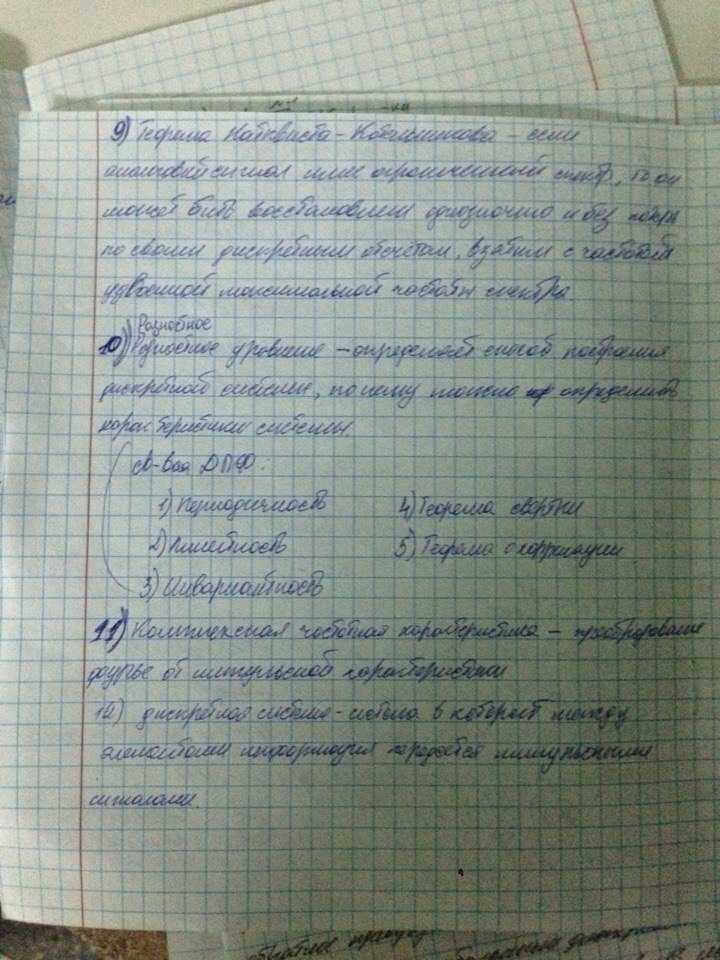 9) Теорема Найквиста-Котельникова - если
аналоговый сигнал имее ограниченный спектр, то он
может быть восстановлен однозначно и без потерь
по своим дискретным отсчётам, взятым с частотой
удвоенной максимальной частоты спектра.
Разностное
10) уровнение - определяет способ построения
дискретной системы, по нему можно определить
характеристики системы.
св-ва ДПФ:
1) Периодичность
4) Теорема свертки
2) Линейность
5) Теорема о корреляции
3) Инвариантность
11) Комплексная частотная характеристика - преобразование
фурье от импульсной характеристики
12) дискретная система - система в которой между
элементами информация передаётся импульсными
сигналами.
обратное